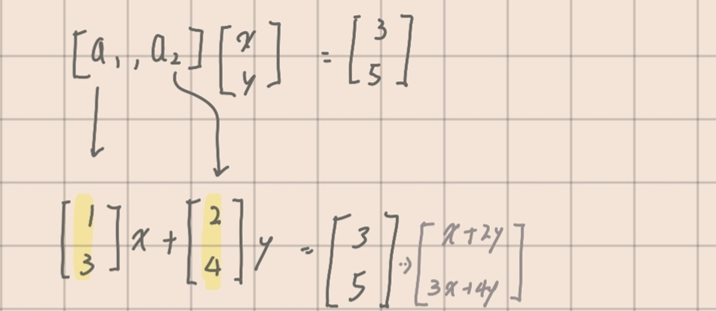 [a₁, a₂] [x y] = [3 5]
[1 3] x + [2 4] y = [3 5] → [x+2y 3x+4y]